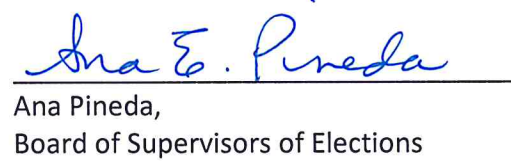 Ana E. Pineda
Ana Pineda,
Board of Supervisors of Elections